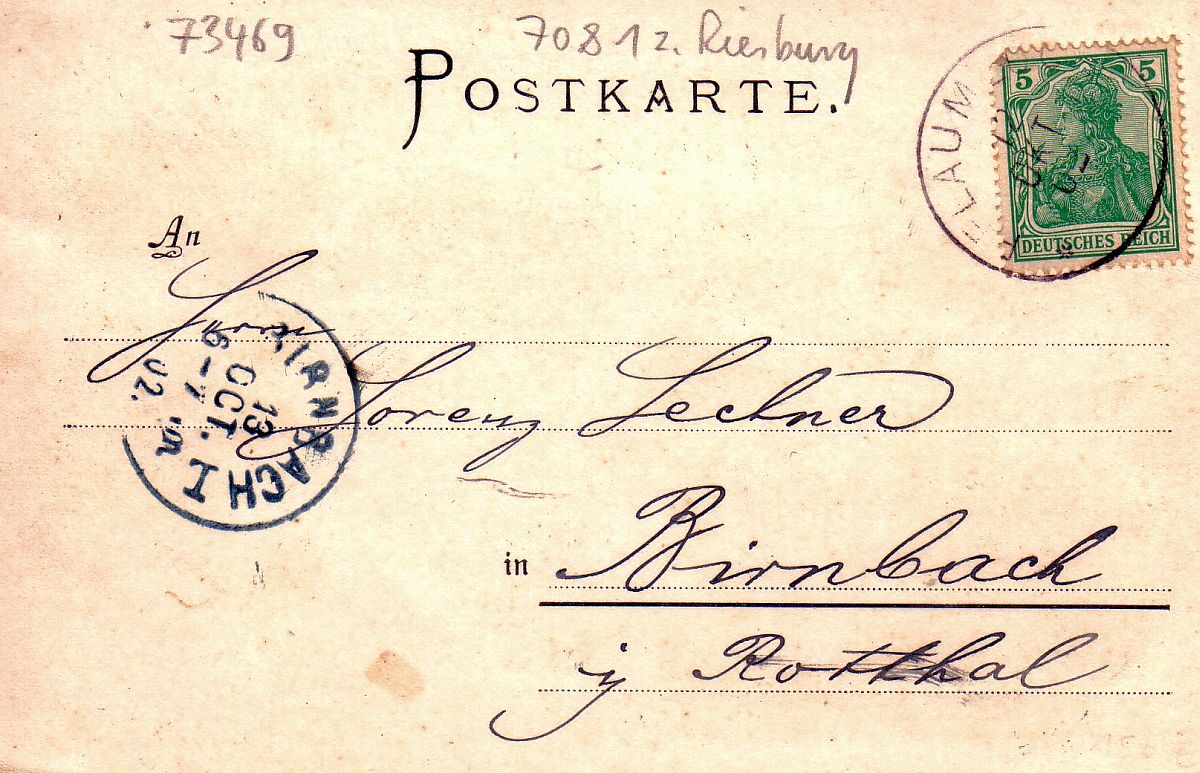 73469
7081 z. Riesburg
POSTKARTE.
5 5
DEUTSCHES REICH
FLAUM
12
OKT
An
Herrn
Lorenz Lechner
BIRNBACH I
13
OCT.
6-7
02.
in Birnbach
ij Rotthal